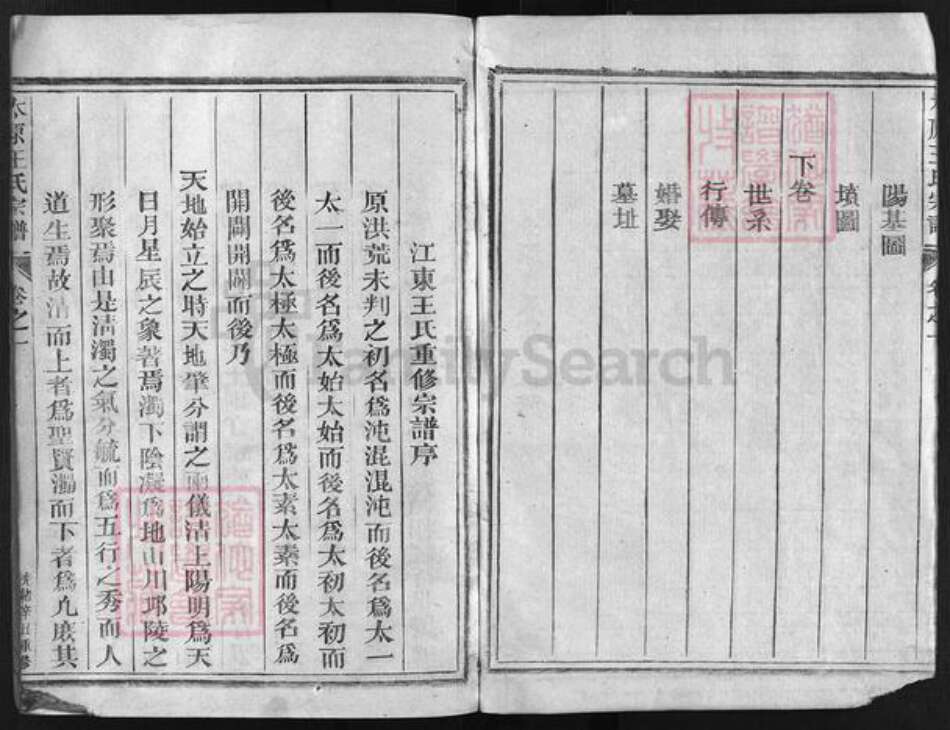 陽基圖
墳圖
下卷
世系
行傳
婚娶
墓址
江東王氏重修宗譜序
原洪荒未判之初名爲沌混混沌而後名爲太一
太一而後名爲太始太始而後名爲太初太初而
後名爲太極太極而後名爲太素太素而後名爲
開闢開闢而後乃
天地始立之時天地肇分謂之兩儀清上陽明爲天
日月星辰之象著焉濁下陰凝爲地山川邱陵之
形聚焉由是清濁之氣分毓而爲五行之秀而人
道生焉故清而上者爲聖賢濁而下者爲凡庶其
太原王氏宗譜
卷之一
FamilySearch